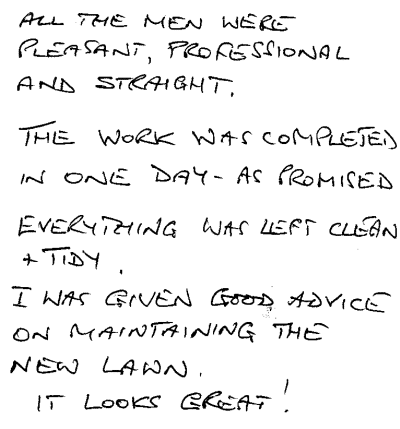 ALL THE MEN WERE
PLEASANT, PROFESSIONAL
AND STRAIGHT.
THE WORK WAS COMPLETED
IN ONE DAY - AS PROMISED
EVERYTHING WAS LEFT CLEAN
+ TIDY.
I WAS GIVEN GOOD ADVICE
ON MAINTAINING THE
NEW LAWN.
IT LOOKS GREAT!